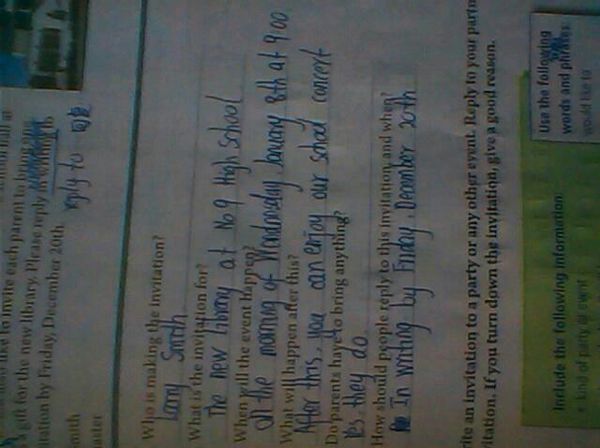 to invite each parent to bring one
a gift for the new library. Please reply in writing to
itation by Friday, December 20th.
reply to 回复
Who is making the invitation?
Larry Smith
What is the invitation for?
The new library at No 9 High School
When will the event happen?
on the morning of Wendnesday January 8th at 9:00
What will happen after this?
After this, you can enjoy our school concert
Do parents have to bring anything?
Yes they do.
How should people reply to this invitation and when?
In writing by Friday, December 20th
ite an invitation to a party or any other event. Reply to your partn
itation. If you turn down the invitation, give a good reason.
Include the following information:
kind of party or event
Use the following
words and phrases:
would like to